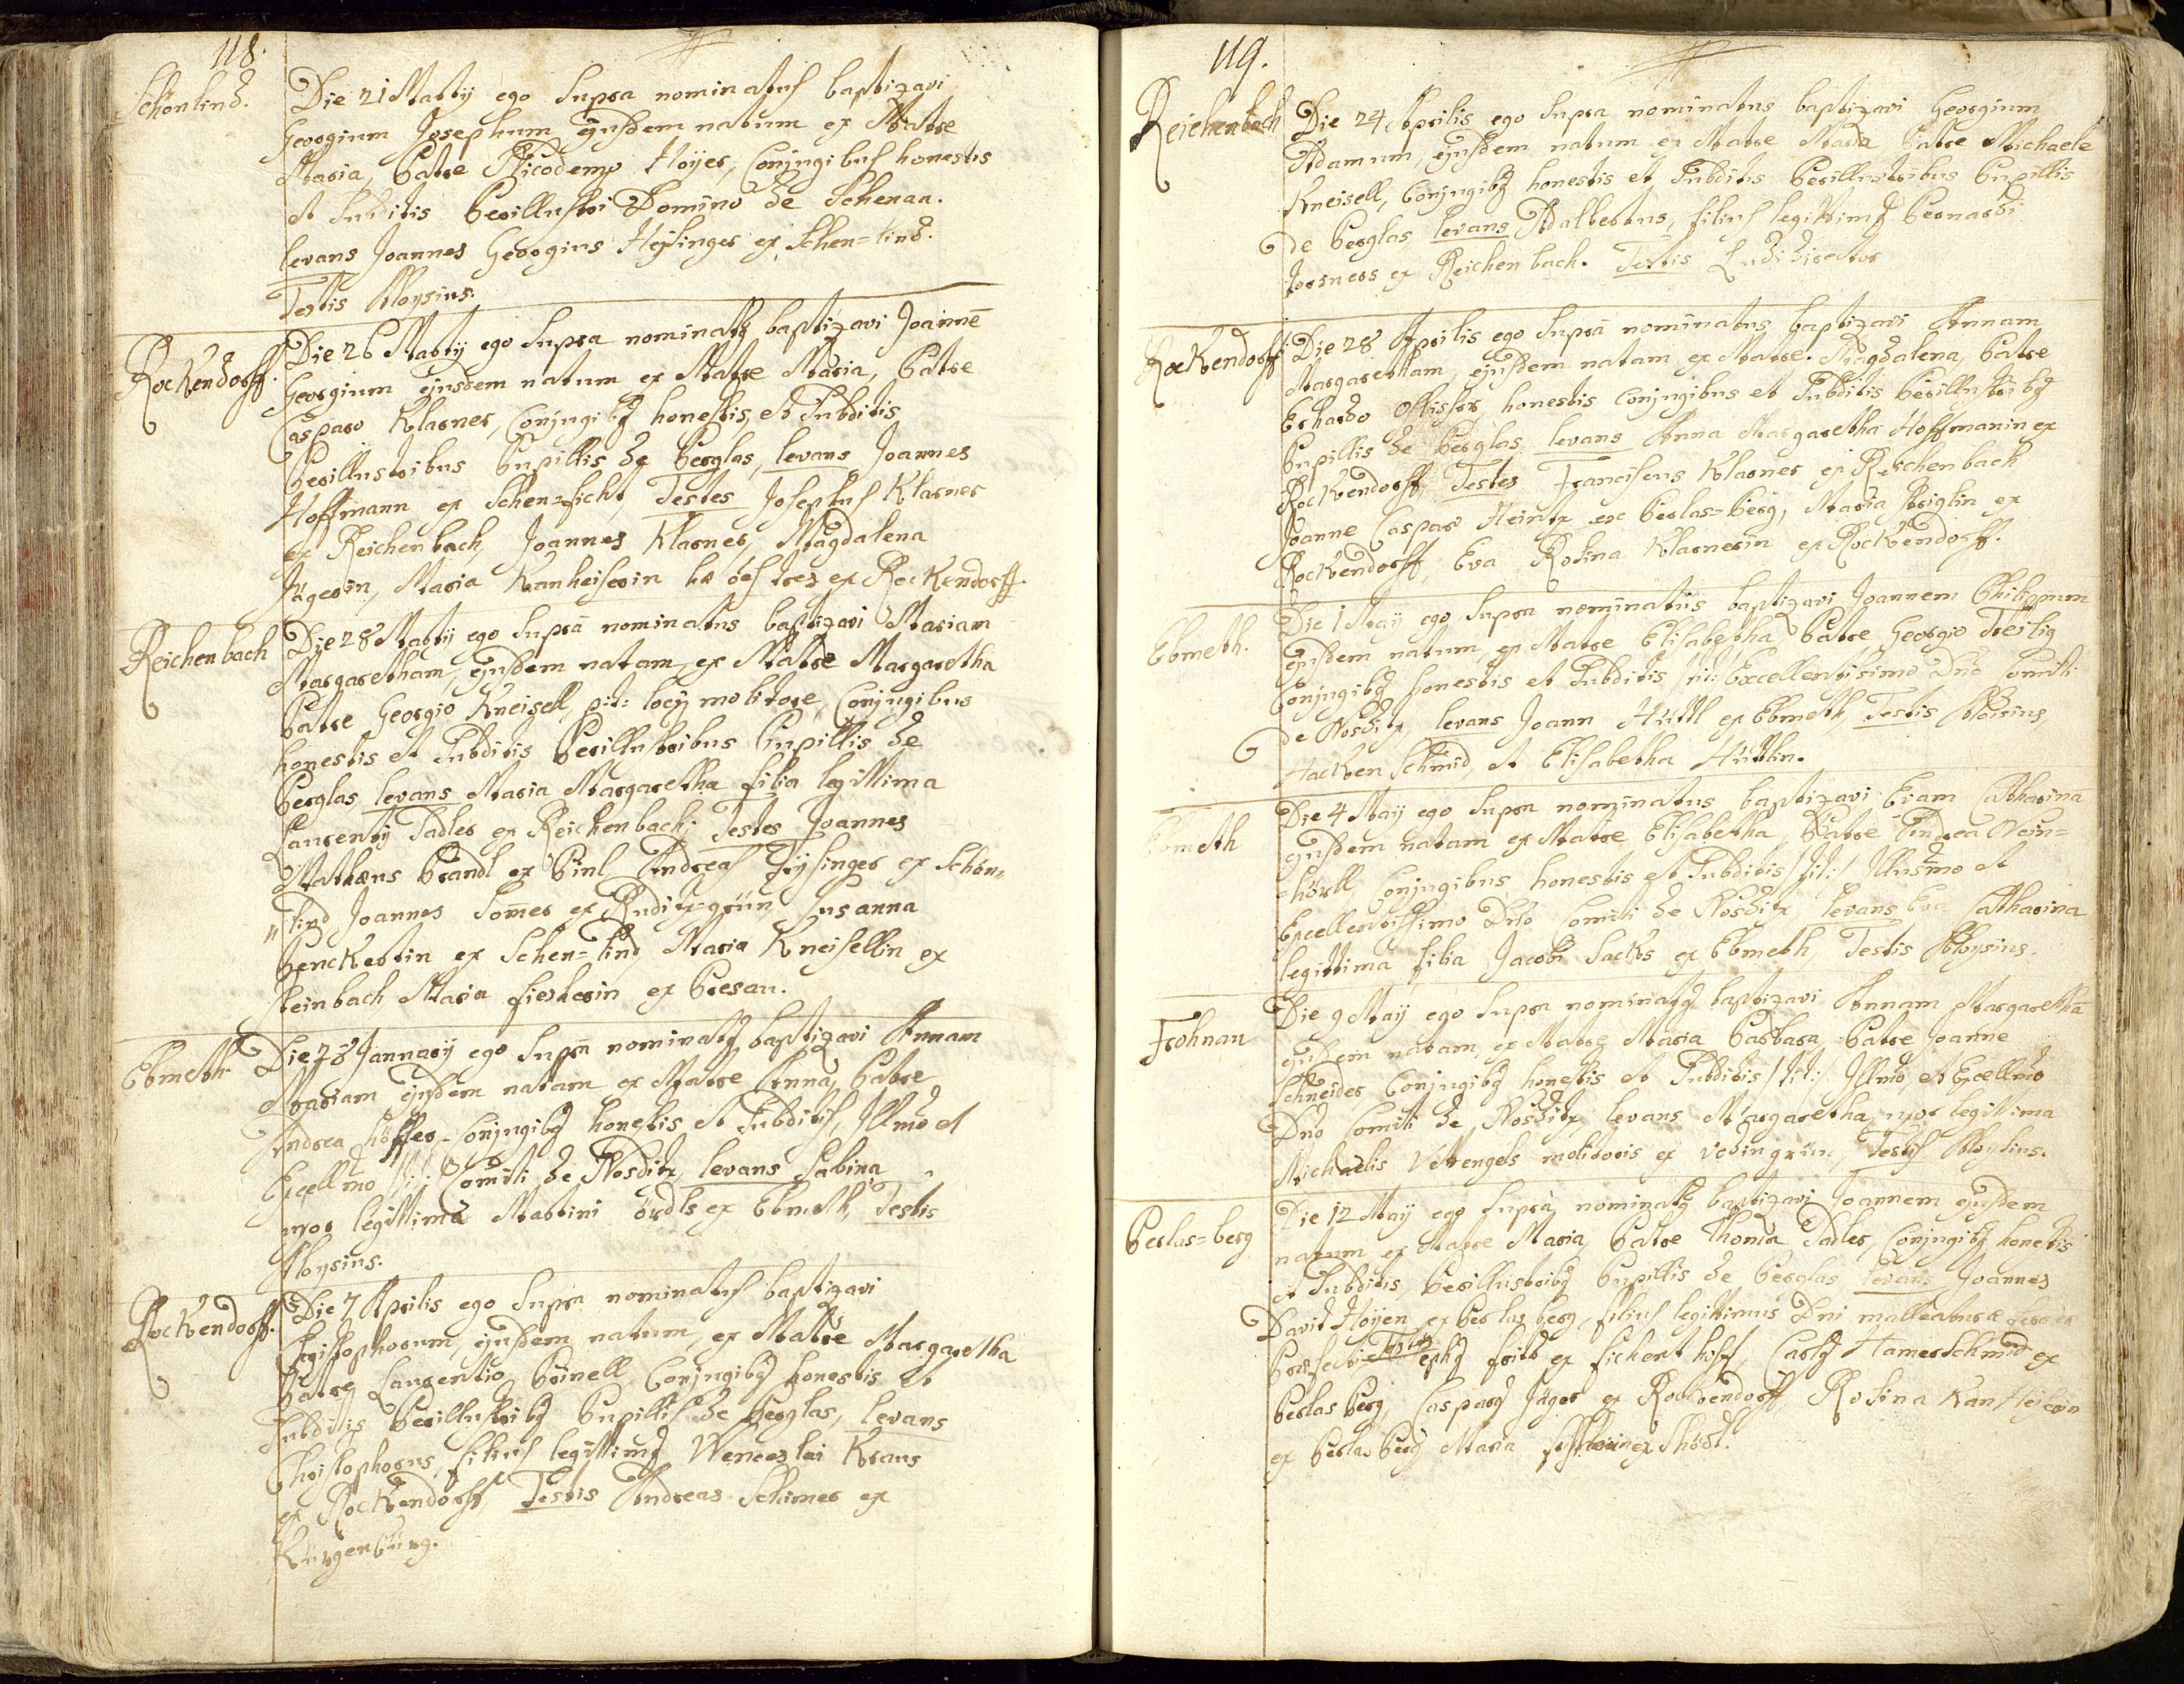 118.
Schönlind.
Die 21 Martij ego supra nominatus baptizavi
Georgium Josephum ejusdem natum ex Matre
Maria, Patre Nicodemo Höyer, Conjugibus honestis
et subditis Perillustri Domino de Schenau.
levans Joannes Georgius Heÿsinger ex Schen=lind.
Testis Aloysius.
Rockendorff.
Die 26 Martij ego supra nominatq baptizavi Joannē
Georgium ejusdem natum ex Matre Maria, Patre
Casparo Klarner, Conjugibq honestis, et subditis
Perillustribus Pupillis de Perglas, levans Joannes
Hoffmann ex Schen=ficht, Testes Josephus Klarner
ex Reichenbach, Joannes Klarner, Magdalena
Jägerin, Maria Kanheiserin tres ex Rockendorff.
Reichenbach
Die 28 Martij ego supra nominatus baptizavi Mariam
Margaretham, ejusdem natam, ex Matre Margaretha
Patre Georgio Kneisell, p:t: loci molitore, Conjugibus
honestis et subditis Perillustribus Pupillis de
Perglas levans Maria Margaretha filia legittima
Laurentij Sadler ex Reichenbach; Testes Joannes
Mathæus Brandl ex Andreas ex Schön„
„lind Joannes Som̄er ex Ruditz=grün, Susanna
Penckertin ex Schen=lind, Maria Kneisellin ex
Steinbach, Maria ex Presau.
Ebmeth
Die 28 Januarij ego supra nominatq baptizavi Annam
Mariam ejusdem natam ex Matre Anna, Patre
Andrea Höffer, Conjugibq honestis et subditis, Illmo et
Excellmo Comiti de Nosditz, levans Sabina
uxor legittima Martini ördls ex Ebmeth, Testis
Aloysius.
Rockendorff.
Die 7 Aprilis ego supra nominatus baptizavi
Christophorum, ejusdem natum, ex Matre Margaretha
Patre Laurentio Conjugibq honestis et
subditis Perillustribq Pupillis de Perglas, levans
Christophorus, filius legittimq Wenceslai Kraus
ex Rockendorff, Testis Andreas Schimer ex
119.
Reichenbach
Die 24 Aprilis ego supra nominatus baptizavi Georgium
Adamum, ejusdem natum ex Matre Maria Patre Michaele
Kneisell, Conjugibq honestis et subditis Perillustribus Pupillis
de Perglas levans Adalbertus, filius legittimq Bernardi
ex Reichenbach. Testis Ludidirector
Rockendorff
Die 28 Aprilis ego supra nominatus baptizavi Annam
Margaretham, ejusdem natam ex Matre Magdalena, Patre
Erhardo honestis Conjugibus et subditis Perillustribq
Pupillis de Perglas, levans Anna Margaretha Hoffmanin ex
Rockendorff, Testes Franciscus Klarner ex Reichenbach
Joanne Casparo Heintz ex Perlas=berg, Maria ex
Rockendorff, Eva Rosina Klarnerin ex Rockendorff.
Ebmeth.
Die 1 Maij ego supra nominatus baptizavi Joannem Philippum
ejusdem natum, ex Matre Elisabetha, Patre Georgio
Conjugibq honestis et subditis /tit: Excellentissimo Dno Comiti
de Nosditz, levans Joann Hüttl ex Ebmeth, Testis Aloisius
Hackenschmid, et Elisabetha Hüttlin.
Ebmeth
Die 4 Maij ego supra nominatus baptizavi Evam Catharinā
ejusdem natam ex Matre Elisabetha, Patre Andrea Nein=
=hörll, Conjugibus honestis et subditis /tit:/ Illusmo et
Excellentissimo Dno Comiti de Nosditz, levans Eva Catharina
legittima filia Jacobi Sacks ex Ebmeth, Testis Aloysius.
Frohnau
Die 9 Maij ego supra nominatq baptizavi Annam Margarethā
ejusdem natam, ex Matre Maria Barbara, Patre Joanne
Schneider, Conjugibq honestis et subditis /tit: Illmo, et Excellmo
Dno Comiti de Nosditz, levans Margaretha uxor legittima
Michaelis molitoris ex Testis Aloysius.
Perlas=berg
Die 12 Maij ego supra nominatq baptizavi Joannem ejusdem
natum ex Matre Maria, Patre Thoma Sadler, Conjugibq honestis
et subditis, Perillustribq Pupillis de Perglas, levans Joannes
David Höyen ex Perlasberg, filius legittimus Dni malleaturæ ferreæ
Testes ex Hamerschmid ex
Perlasberg, Casparq Jäger ex Rockendorff Rosina Kanheiserin
ex Perlasberg Maria